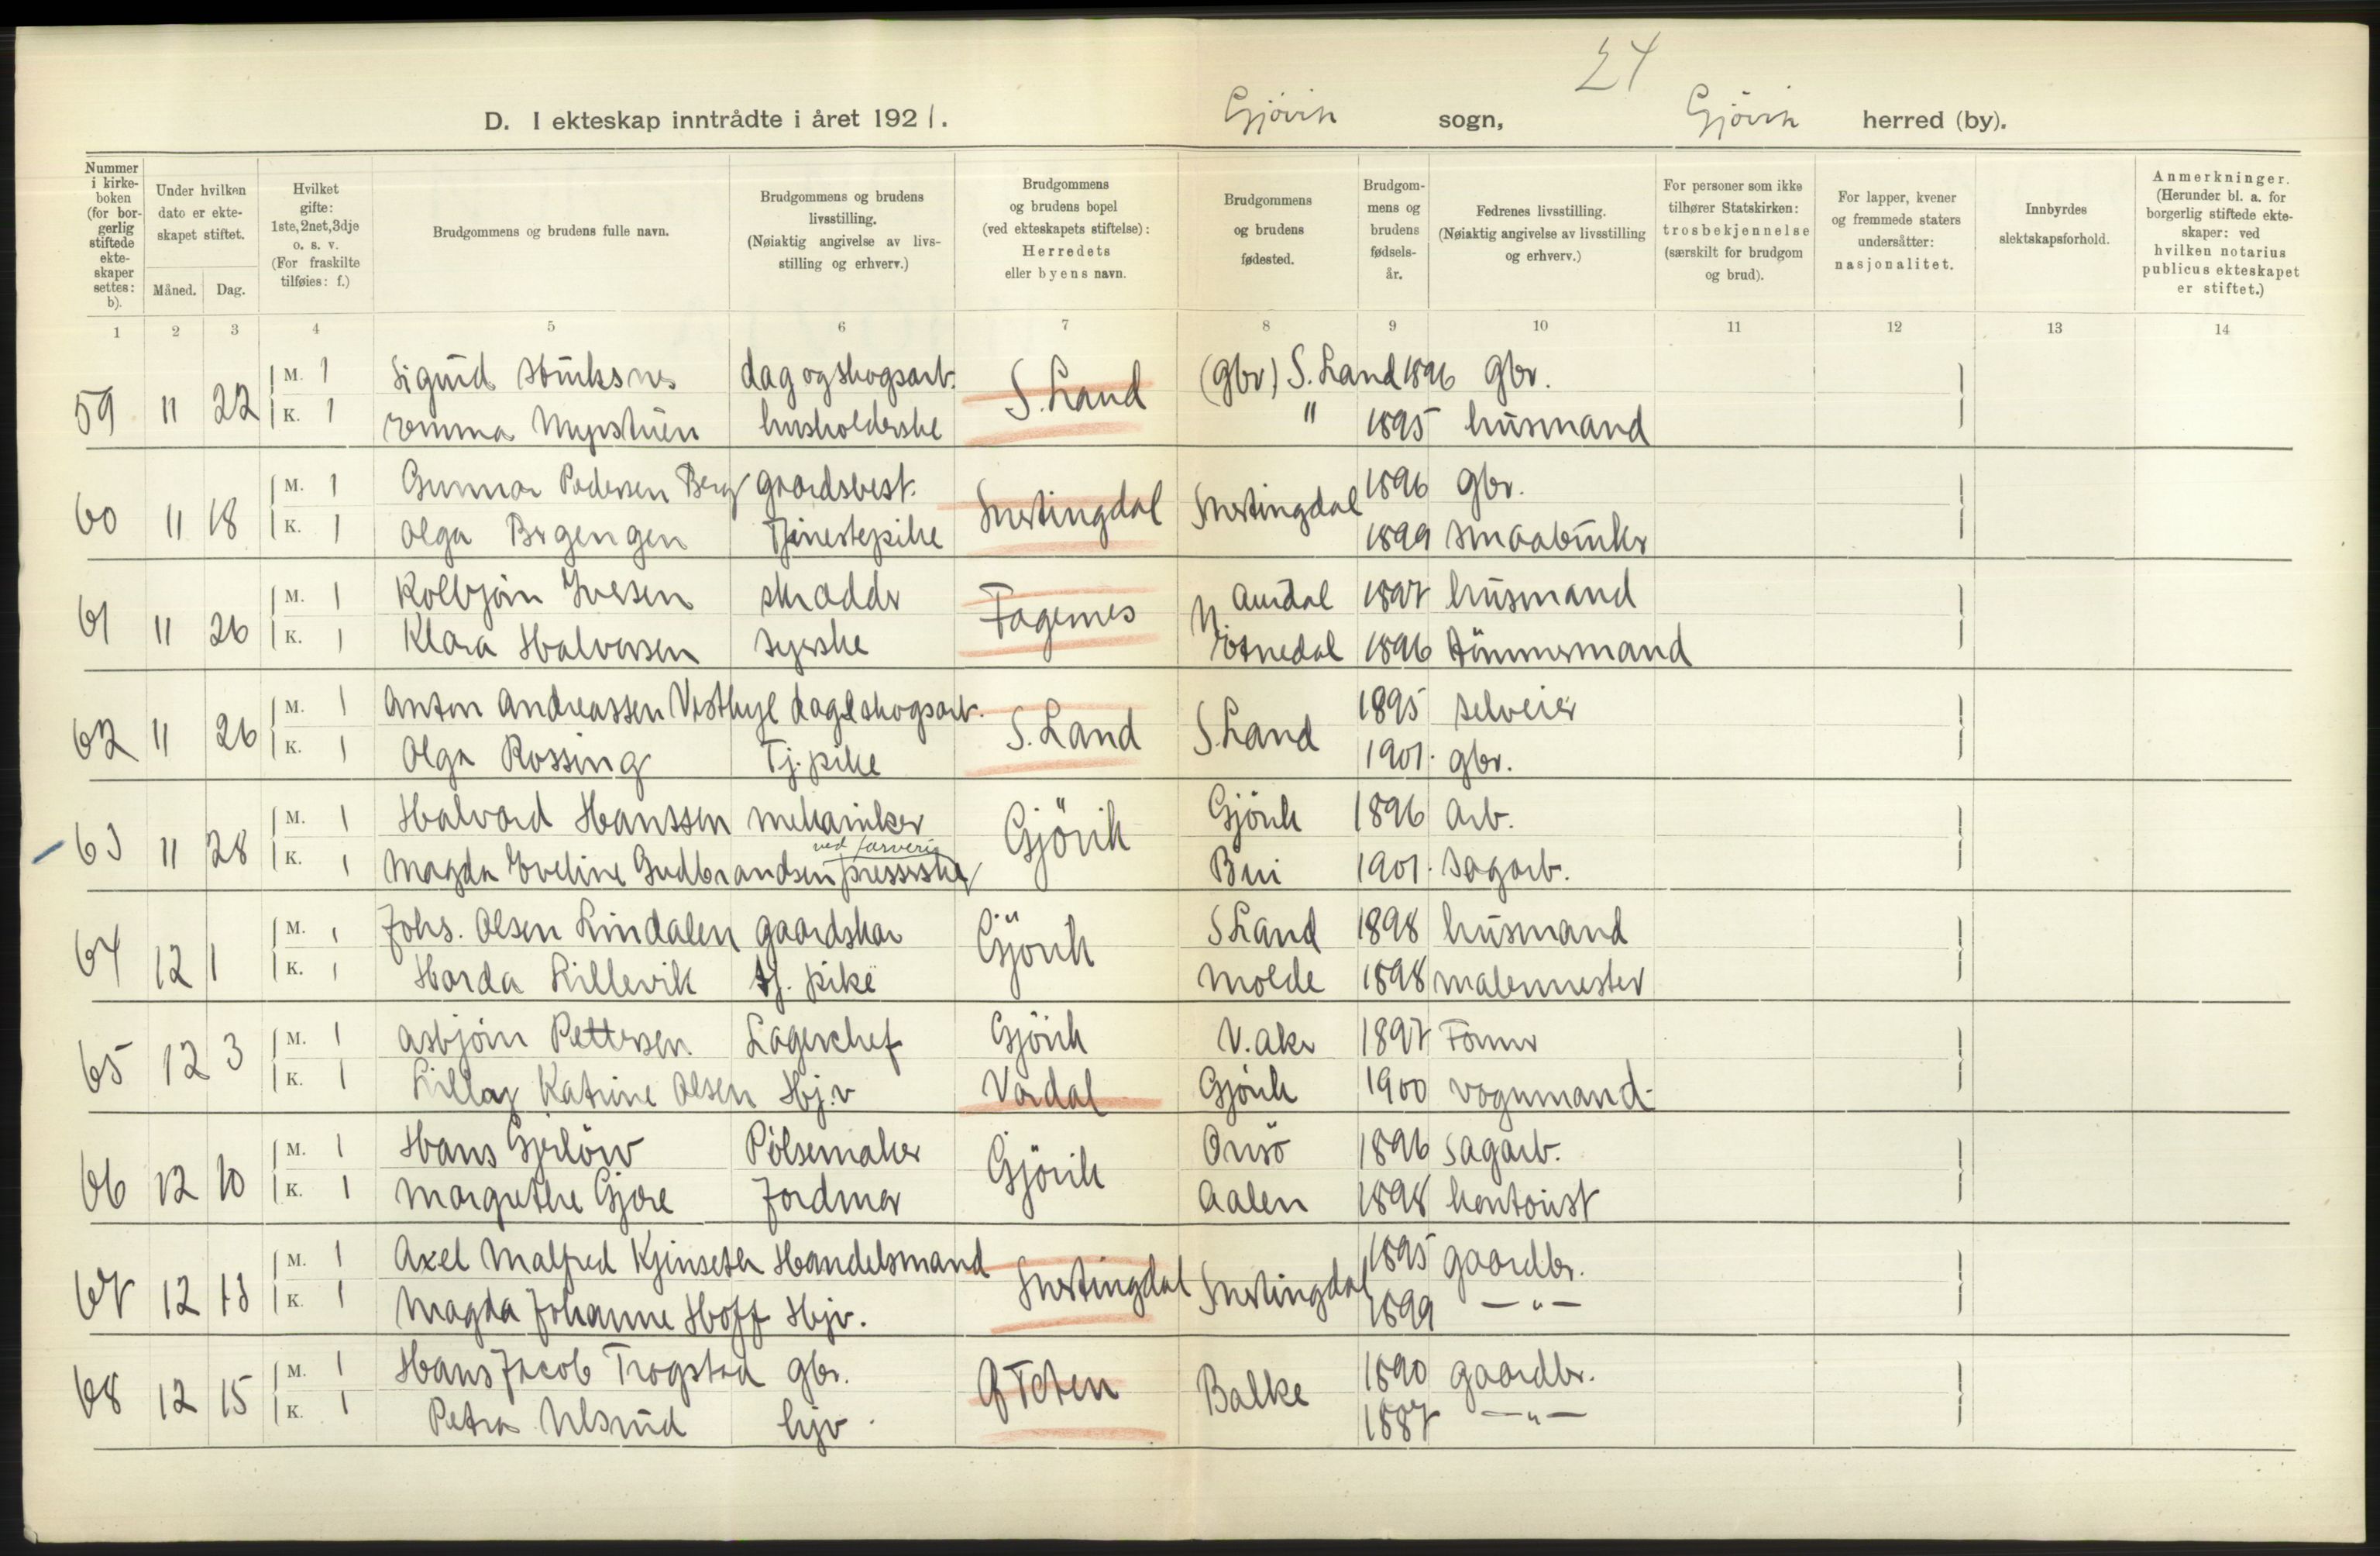 24
D. I ekteskap inntrådte i året 1921. Gjøvik sogn, Gjøvik herred (by).
Nummer i kirkeboken (for borgerlig stiftede ekteskaper settes: b).
Under hvilken dato er ekteskapet stiftet.
Måned. Dag.
Hvilket gifte: 1ste, 2net, 3dje o. s. v. (For fraskilte tilføies: f.)
Brudgommens og brudens fulle navn.
Brudgommens og brudens livsstilling. (Nøiaktig angivelse av livsstilling og erhverv.)
Brudgommens og brudens bopel (ved ekteskapets stiftelse): Herredets eller byens navn.
Brudgommens og brudens fødested.
Brudgommens og brudens fødselsår.
Fedrenes livsstilling. (Nøiaktig angivelse av livsstilling og erhverv.)
For personer som ikke tilhører Statskirken: trosbekjennelse (særskilt for brudgom og brud).
For lapper, kvener og fremmede staters undersåtter: nasjonalitet.
Innbyrdes slektskapsforhold.
Anmerkninger. (Herunder bl. a. for borgerlig stiftede ekteskaper: ved hvilken notarius publicus ekteskapet er stiftet.)
1 2 3 4 5 6 7 8 9 10 11 12 13 14
59 11 22 M. 1 Sigurd dag og skogsarb. S. Land (gbr) S. Land 1896 gbr.
K. 1 Emma Myrstuen husholderske " 1895 husmand
60 11 18 M. 1 Gunnar Pedersen Berg gaardsbest. Snertingdal Snertingdal 1896 gbr.
K. 1 Olga Tjenestepike 1899 smaabruker
61 11 26 M. 1 Kolbjön Iversen skrædder Fagernes N. Aurdal 1897 husmand
K. 1 Klara Halvorsen syerske Etnedal 1896 tömmermand
62 11 26 M. 1 Anton Andreassen dag & skogsarb. S. Land S. Land 1895 selveier
K. 1 Olga Rossing Tj. pike 1901. gbr.
63 11 28 M. 1 Halvard Hanssen mekaniker Gjövik Gjövik 1896 Arb.
K. 1 Magda Eveline Gudbrandsen ved farveri presserske Biri 1901. Sagarb.
64 12 1 M. 1 Johs. Olsen Lindalen gaardskar Gjövik S Land 1898 husmand
K. 1 Harda Lillevik tj. pike Molde 1898 malermester
65 12 3 M. 1 Asbjörn Pettersen Lagerchef Gjövik V. Aker 1897 Former
K. 1 Katrine Olsen Hj.v Vardal Gjövik 1900 vognmand
66 12 10 M. 1 Hans Gjerlöw Pölsemaker Gjövik Onsö 1896 sagarb.
K. 1 Margrethe Gjære Jordmor Aalen 1898 kontorist
67 12 13 M. 1 Axel Malfred Kjinseth Handelsmand Snertingdal Snertingdal 1895 gaardbr.
K. 1 Magda Johanne Hoff Hjv. 1899 — " —
68 12 15 M. 1 Hans Jacob Trogstad gbr. Ø Toten Balke 1890 gaardbr.
K. 1 Petra Ulsrud hjv. 1887 — " —